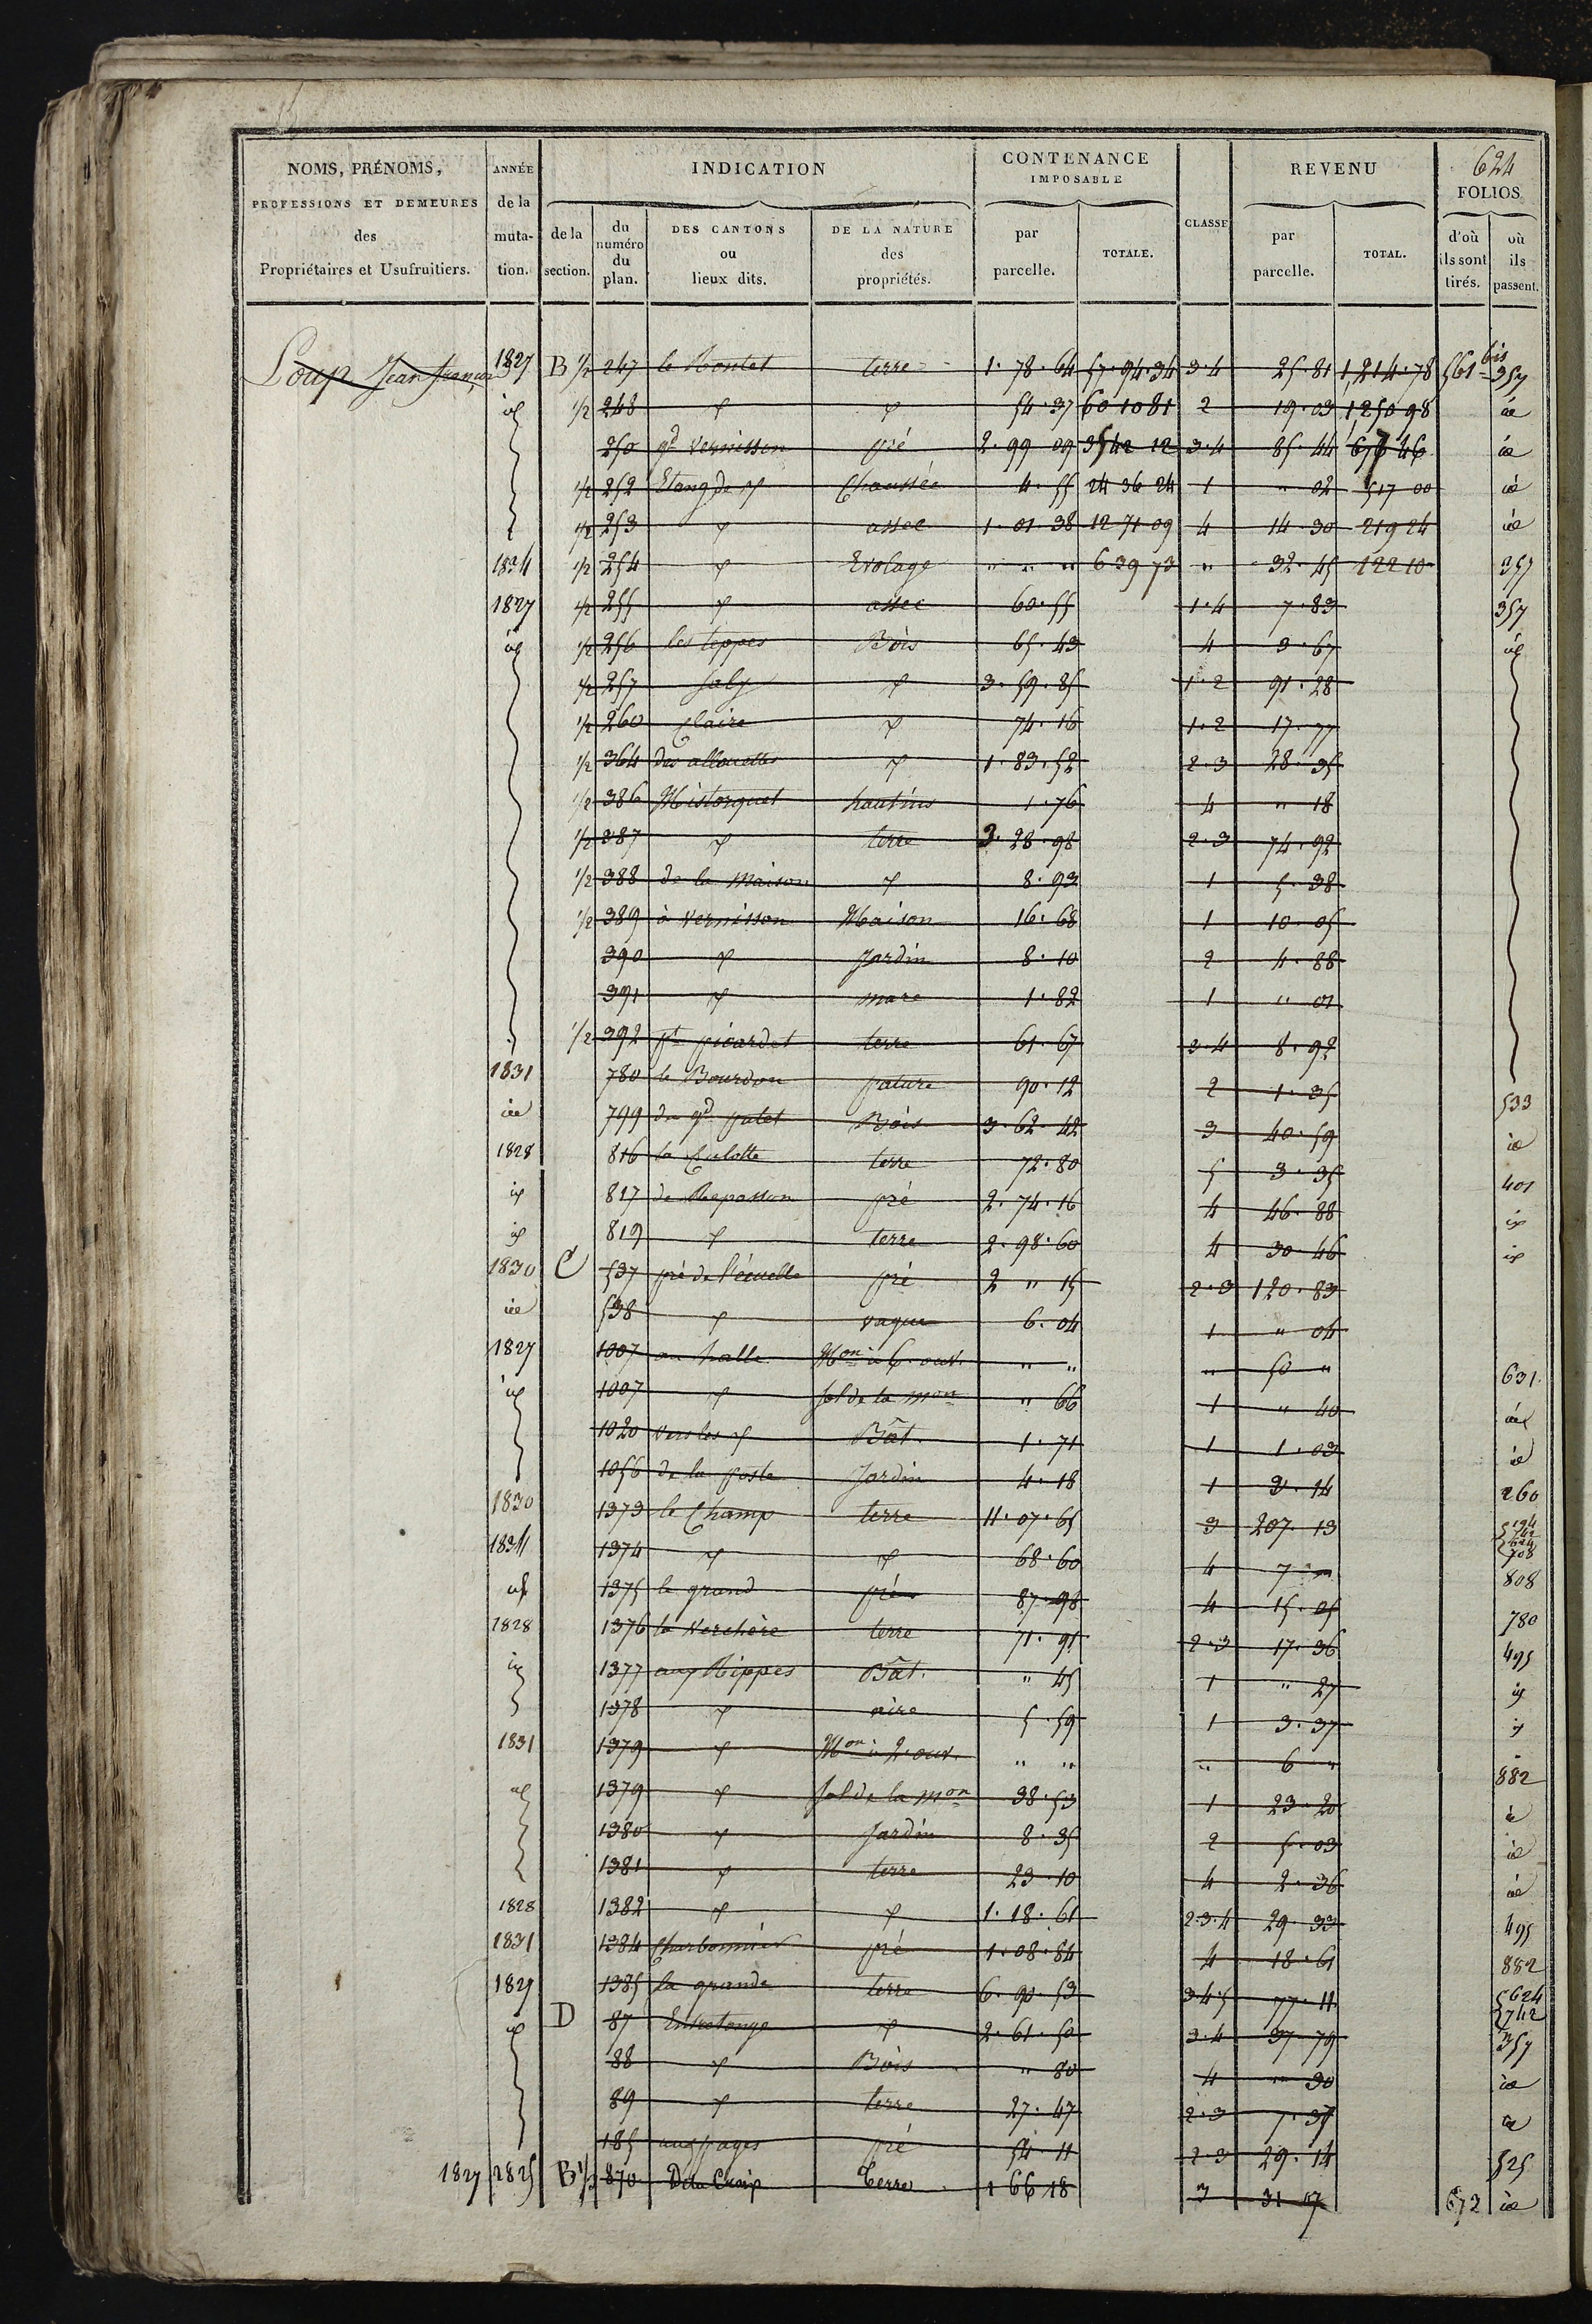 624
NOMS, PRÉNOMS, PROFESSIONS ET DEMEURES des Propriétaires et Usufruitiers.
ANNÉE de la muta- tion.
INDICATION
de la section.
du numéro du plan.
DES CANTONS ou lieux dits.
DE LA NATURE des propriétés.
CONTENANCE IMPOSABLE
par parcelle.
TOTALE.
CLASSE
REVENU
par parcelle.
TOTAL.
FOLIOS
d'où ils sont tirés.
où ils passent.
Loup Jean françois 1827 B 1/2 247 le Montet terre 1. 78. 64 57. 94. 34 3.4 25. 81 1,214. 78 561 bis 357
id 1/2 248 d d 54. 37 60 10 81 2 19. 03 1250 98 id
250 gd vernisson pré 2. 99 09 35 42 12 3.4 85. 44 676 46 id
1/2 252 Etang de d Chaussée 4. 55 24 36 24 1 " 02 517 00 id
1/2 253 d assec 1. 01. 38 12 71 09 4 14. 30 219 24 id
1834 1/2 254 d Evolage " " " 6 39 73 " 32. 45 122 10 357
1827 1/2 255 d assec 60. 55 1.4 7. 83 357
id 1/2 256 les teppes Bois 65. 43 4 9. 67 id
1/2 257 d 3. 59. 85 1.2 91. 28
1/2 260 Claire d 74. 16 1.2 17. 77
1/2 364 des allouettes d 1. 83. 52 2.3 28. 35
1/2 386 Mistorquet hautins 1. 76 4 " 18
1/2 387 d terre 3. 28. 98 2.3 74. 92
1/2 388 de la Maison d 8. 93 1 5. 38
1/2 389 à vernisson Maison 16. 68 1 10. 05
390 d Jardin 8. 10 2 4. 88
391 d mare 1. 82 1 " 01
1/2 392 pt picardet terre 61. 67 3.4 8. 92
1831 780 le Bourdon pature 90. 12 2 1. 35 533
id 799 du gd palet Bois 3. 62. 42 3 40. 59 id
1828 816 la Culotte terre 72. 80 5 3. 35 401
id 817 de Reposson pré 2. 74. 16 4 46. 88 id
id 819 d terre 2. 98. 60 4 30. 46 id
1830 C 537 pré de l'écuelle pré 2 " 15 2.3 120. 83
id 538 d vague 6. 04 1 " 04
1827 1007 au halle Mon à 6. ouv. " " " 50 " 631
id 1007 d sol de la mon " 66 1 " 40 id
1020 vers les d Bât. 1. 71 1 1. 03 id
1056 de la poste Jardin 4. 18 1 2. 14 260
1830 1373 le Champ terre 11. 07. 65 3 207. 13 194 742 624 708
1834 1374 d d 68. 60 4 7 " 808
id 1375 le grand pré 87. 98 4 15. 05 780
1828 1376 la Verchère terre 71. 91 2.3 17. 36 495
id 1377 aux Rippes Bât. " 45 1 " 27 id
1378 d aire 5. 59 1 3. 37 id
1831 1379 d Mon à 2. ouv. " " " 6 " 882
id 1379 d sol de la mon 38. 53 1 23. 20 id
1380 d Jardin 8. 35 2 5. 03 id
1381 d terre 23. 10 4 2. 36 id
1828 1382 d d 1. 18. 61 2.3.4 29. 33 495
1831 1384 Charbonnier pré 1. 08. 84 4 18. 61 882
1827 1385 la grande terre 6. 90. 53 3.4.5 77. 11 624 742
id D 87 Entretonge d 2. 61. 50 3.4 37. 79 357
88 d Bois " 80 4 " 30 id
89 d terre 27. 47 2.3 7. 37 id
185 aux pages pré 54. 11 2.3 29. 14 525
1827 1825 B 1/2 870 De la Croix terre 1 66 18 3 31 07 672 id